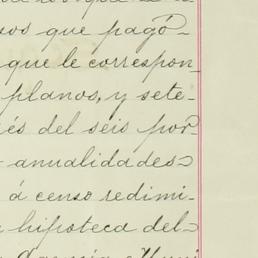 sos que pagó
que le correspon
planos, y sete-
és del seis por
anualidades
á censo redimi-
hipoteca del